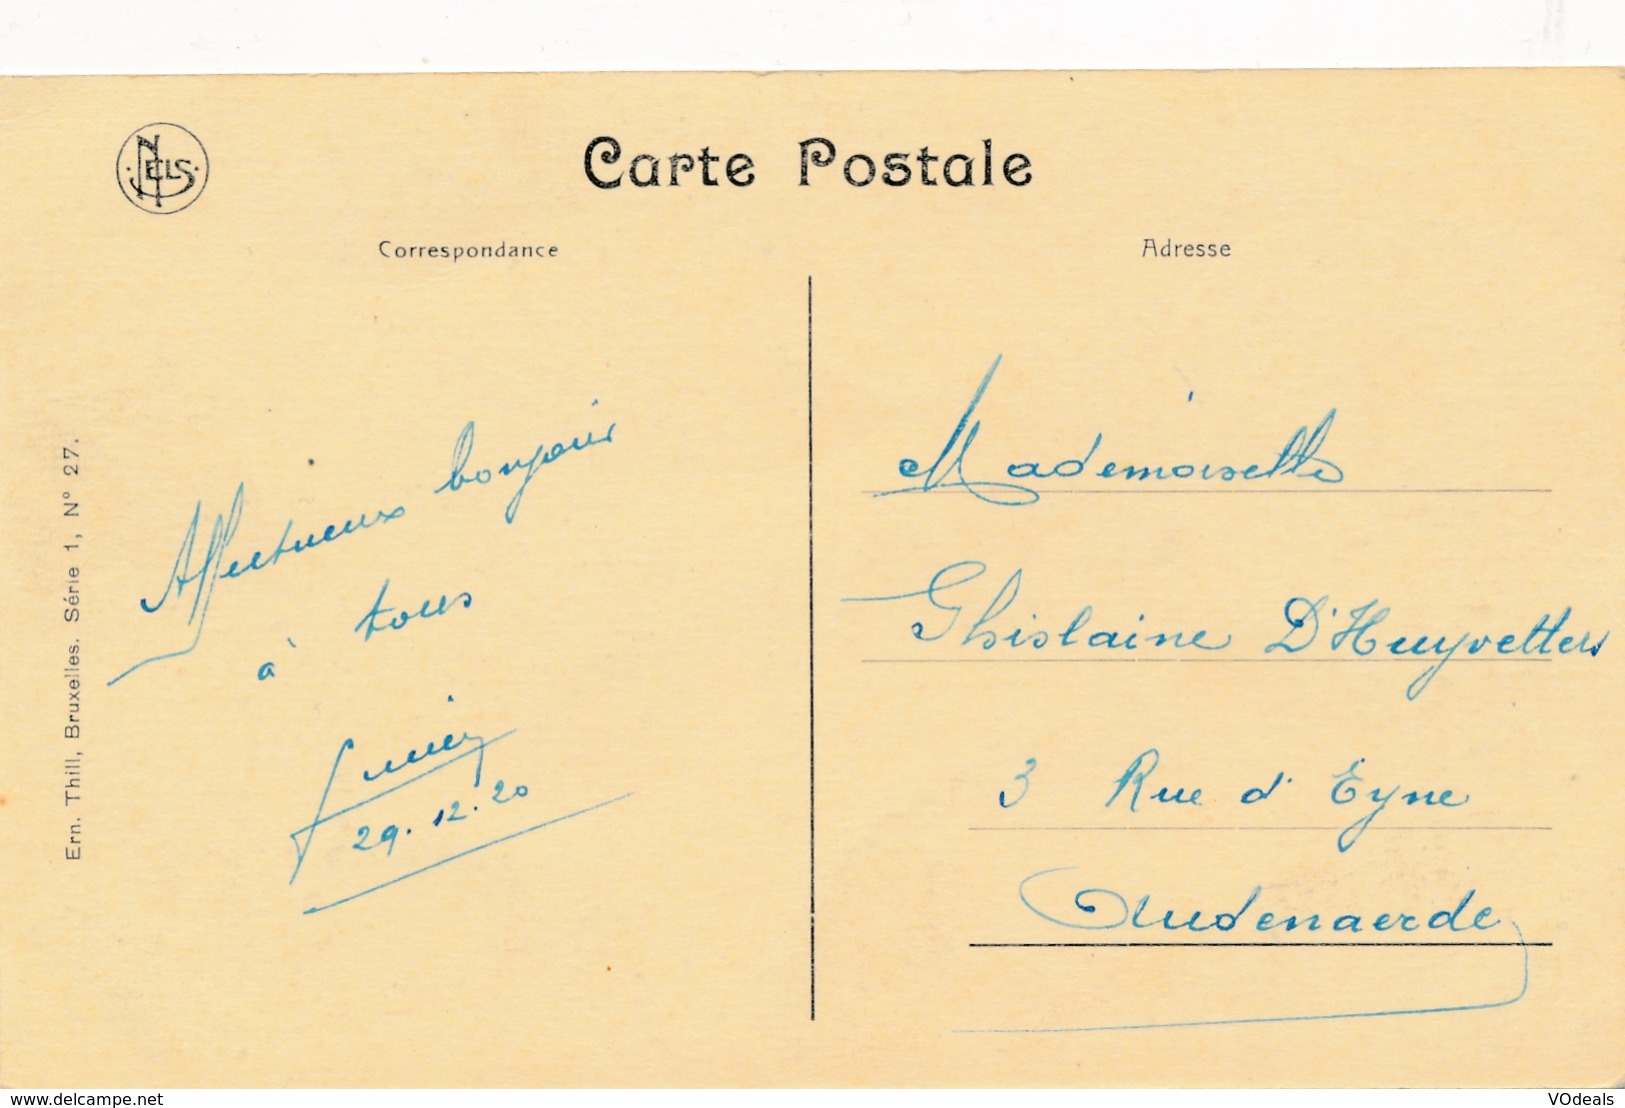 NELS
Carte Postale
Correspondance
Adresse
Ern. Thill, Bruxelles. Série 1, N° 27.
Affectueux bonjour
à tous
29.12.20
Mademoiselle
Ghislaine D'Huyvetters
3 Rue d'Eyne
Audenaerde
www.delcampe.net
VOdeals